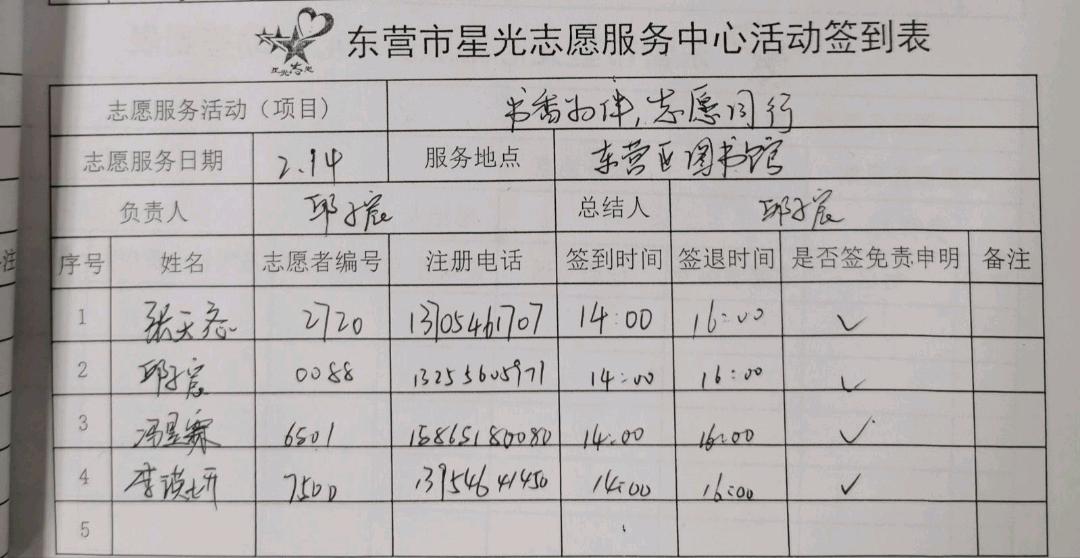 东营市星光志愿服务中心活动签到表
志愿服务活动（项目） 书香为伴，志愿同行
志愿服务日期 2.14 服务地点 东营区图书馆
负责人 邱子宸 总结人 邱子宸
序号 姓名 志愿者编号 注册电话 签到时间 签退时间 是否签免责申明 备注
1 张天 2720 13705461707 14:00 16:00 ✓
2 邱子宸 0088 13255605971 14:00 16:00 ✓
3 冯昱霖 6501 15865180080 14:00 16:00 ✓
4 李瑛妍 7500 13954641450 14:00 16:00 ✓
5